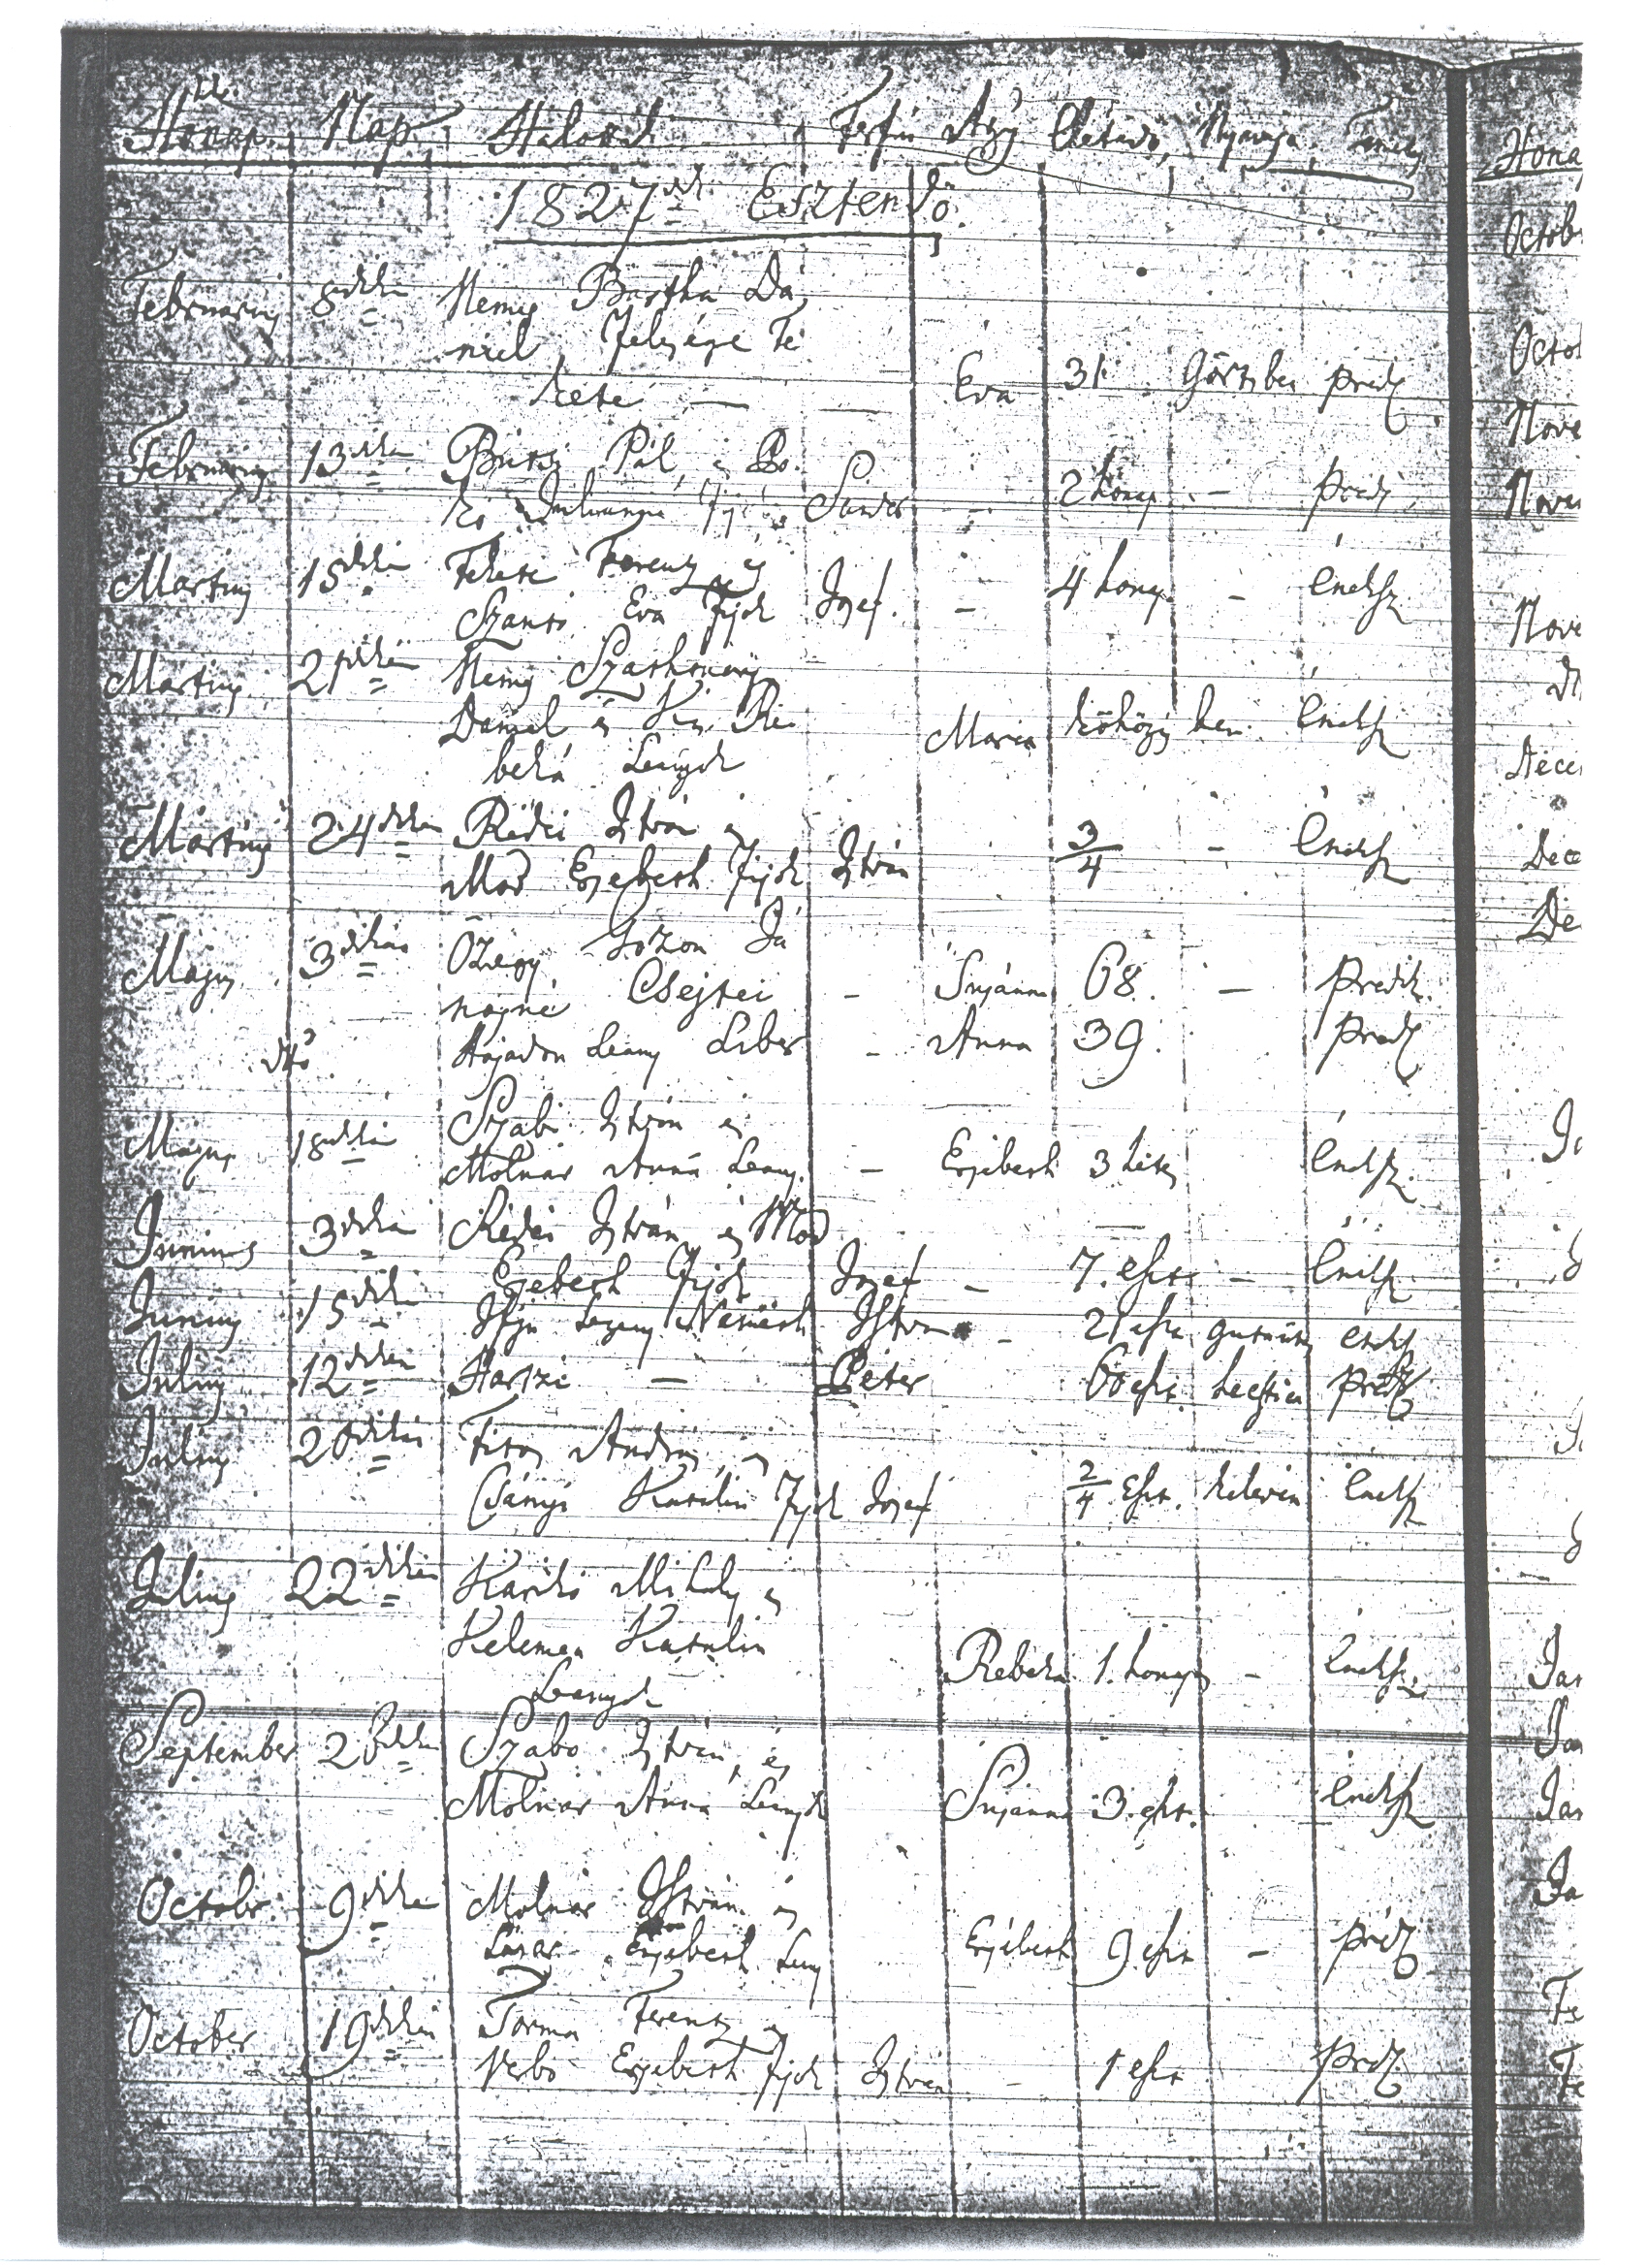 Honap. Nap. Halottak Férfiu Aszszony Életidő, Nyavaja, Temetés
1827dik Esztendő.
Februarius 8dikán Nemes Bartha Dá
niel felesége Fe
kete — — Eva 31 Görtsben præd.
Februarius 13dikán Pál és
fijok Sandor – 2 honap – præd.
Martius 15dikén Fekete Ferentz és
Szántó Eva fijok Josef. – 4 honap – éneksz
Martius 21dikén Nemes
Daniel és Kis Re
beka Leányok Maria köhögésben éneksz
Martius 24dikén Rédei István és
Mod Ersebeth fijok István 3/4 – éneksz
Majus 3dikán Özvegy Gozon Já
nosné Csejtei – Susánna 68. – prædik.
dto Hajadon Leány Liber – Anna 39. præd
Majus 18dikán Szabó István és
Molnár Anna Leány – Ersébeth 3 hetes éneksz.
Junius 3dikán Rédei István és Mod
Ersebeth fijok Josef – 7. eszt. – éneksz
Junius 15dikén Ifju Legény Németh István – 21 eszt gutaütés énksz
Julius 12dikén Hartzi — Péter 60 eszt. hectica præd
Julius 20dikán András és
Csányi Katalin fijok Josef 2/4 Eszt. kelevén éneksz
Julius 22dikén Karikó Mihály és
Kelemen Katalin
Leanyok Rebeka 1. honapos – éneksz.
September 26dikán Szabo István és
Molnár Anna Leányok Susanna 3. eszt. éneksz
Octobr. 9dikén Molnár István és
Lázár Ersébeth Leány Ersébeth 9 eszt – præd
October 19dikén Torma Ferentz és
Vebo Ersébeth fijok István – 1 eszt præd.
Hona
Octob
Octob
Nove
Nove
Nove
Dece
Dece
De
Jan
Jan
Jan
Ja
Fe
Fe